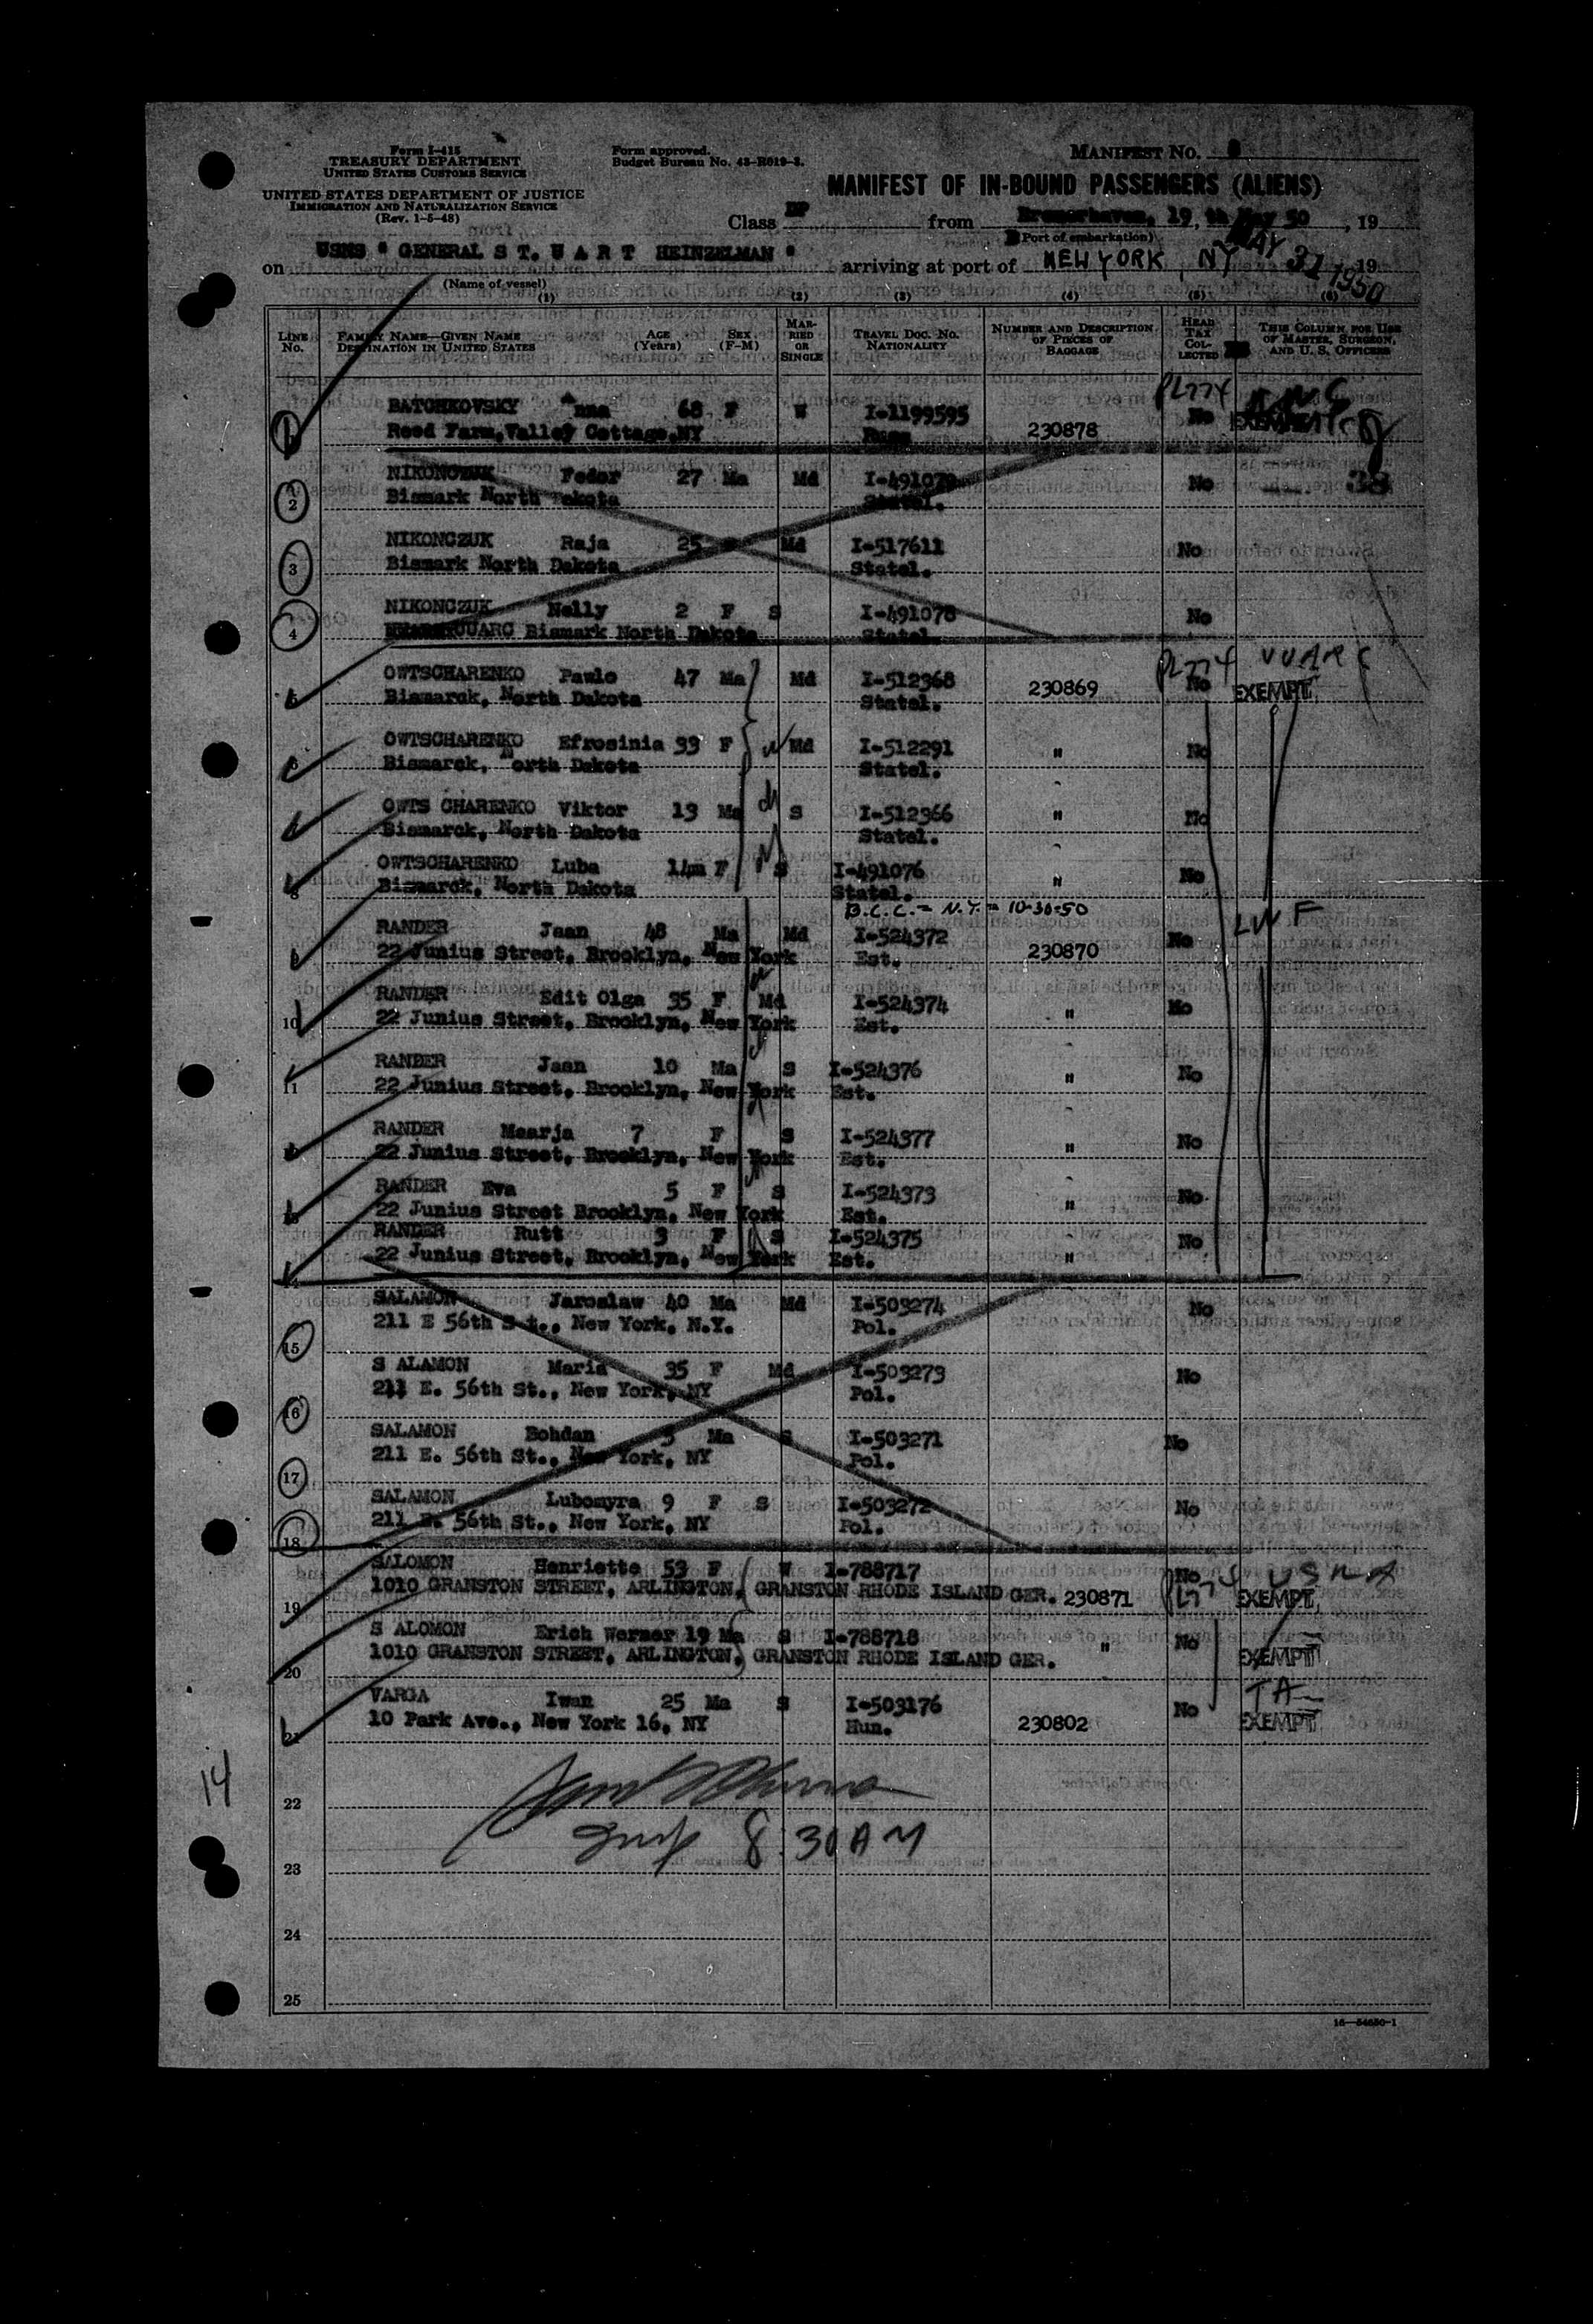 Form I-415
TREASURY DEPARTMENT
UNITED STATES CUSTOMS SERVICE
UNITED STATES DEPARTMENT OF JUSTICE
IMMIGRATION AND NATURALIZATION SERVICE
(Rev. 1-5-48)
Form approved.
Budget Bureau No. 43-R019-3.
MANIFEST No.
MANIFEST OF IN-BOUND PASSENGERS (ALIENS)
Class DP from Bremerhaven, 19, th May 50, 19
(Port of embarkation)
on USNS " GENERAL S T. U A R T HEINZELMAN " arriving at port of NEW YORK, NY MAY 31 1950, 19
(Name of vessel)
(1) (2) (3) (4) (5) (6)
LINE No.
FAMILY NAME—GIVEN NAME
DESTINATION IN UNITED STATES
AGE (Years)
SEX (F-M)
MARRIED OR SINGLE
TRAVEL DOC. No. NATIONALITY
NUMBER AND DESCRIPTION OF PIECES OF BAGGAGE
HEAD TAX COLLECTED
THIS COLUMN FOR USE OF MASTER, SURGEON, AND U. S. OFFICERS
PL774
1 BATCHKOVSKY Anna 68 F W I-1199595 No
Reed Farm, Valley Cottage, NY Russ 230878
2 NIKONCZUK Fedor 27 Ma Md I-491079 No 38
Bismark North akota Statel.
3 NIKONCZUK Raja 25 Md I-517611 No
Bismark North Dakota Statel.
4 NIKONCZUK Nelly 2 F S I-491078 No
Bismark North Dakota Statel.
PL774
OWTSCHARENKO Pawlo 47 Ma Md I-512368 230869 No EXEMPT
Bismarck, North Dakota Statel.
OWTSCHARENKO Efrosinia 33 F Md I-512291 " No
Bismarck, North Dakota Statel.
OWTS CHARENKO Viktor 13 Ma S I-512366 " No
Bismarck, North Dakota Statel.
8 OWTSCHARENKO Luba 14m F S I-491076 " No
Bismarck, North Dakota Statel.
B.C.C. = N.Y. = 10-30-50
LWF
RANDER Jaan 48 Ma Md I-524372 230870 No
22 Junius Street, Brooklyn, New York Est.
10 RANDER Edit Olga 35 F Md I-524374 " No
22 Junius Street, Brooklyn, New York Est.
11 RANDER Jaan 10 Ma S I-524376 " No
22 Junius Street, Brooklyn, New York Est.
RANDER Maarja 7 F S I-524377 " No
22 Junius Street, Brooklyn, New York Est.
RANDER Eva 5 F S I-524373 " No
22 Junius Street Brooklyn, New York Est.
RANDER Rutt 3 F S I-524375 " No
22 Junius Street, Brooklyn, New York Est.
SALAMON Jaroslaw 40 Ma Md I-503274 No
15 211 E 56th St., New York, N.Y. Pol.
S ALAMON Maria 35 F Md I-503273 No
16 211 E. 56th St., New York, NY Pol.
SALAMON Bohdan 3 Ma S I-503271 No
17 211 E. 56th St., New York, NY Pol.
SALAMON Lubomyra 9 F S I-503272 No
18 211 E. 56th St., New York, NY Pol.
SALOMON Henriette 53 F W I-788717 No
19 1010 GRANSTON STREET, ARLINGTON, GRANSTON RHODE ISLAND GER. 230871 PL774 EXEMPT
S ALOMON Erich Werner 19 Ma S I-788718 " No
20 1010 GRANSTON STREET, ARLINGTON, GRANSTON RHODE ISLAND GER. EXEMPT
VARGA Iwan 25 Ma S I-503176 No
21 10 Park Ave., New York 16, NY Hun. 230802 EXEMPT
14
22
8:30 AM
23
24
25
16—54650-1